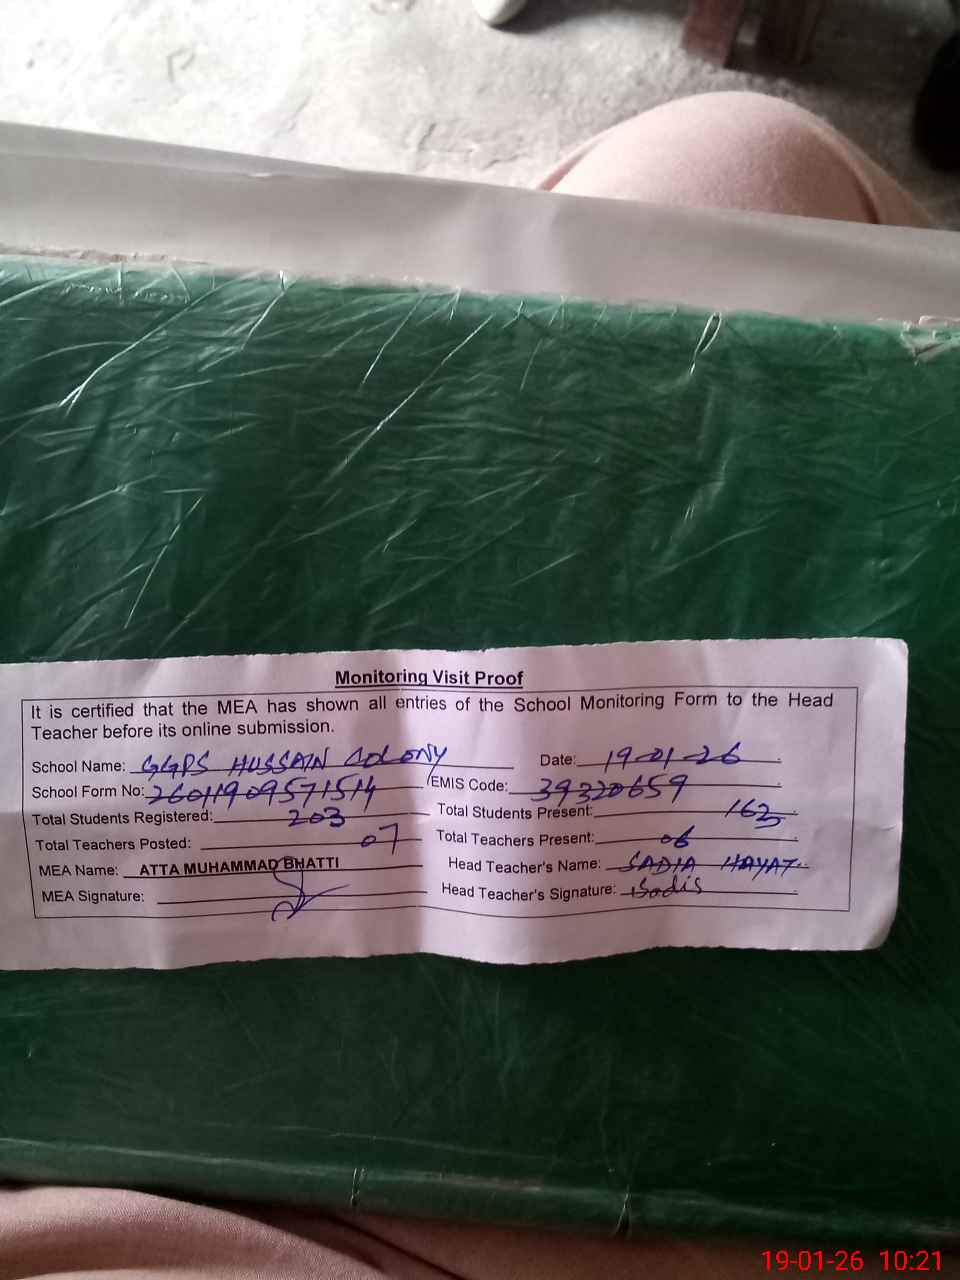 Monitoring Visit Proof
It is certified that the MEA has shown all entries of the School Monitoring Form to the Head
Teacher before its online submission.
School Name: GGPS HUSSAIN COLONY Date: 19-01-26
School Form No: 26011909571514 EMIS Code: 39320659
Total Students Registered: 203 Total Students Present: 163
Total Teachers Posted: 07 Total Teachers Present: 06
MEA Name: ATTA MUHAMMAD BHATTI Head Teacher's Name: SADIA HAYAT
MEA Signature: Head Teacher's Signature: Sadia
19-01-26 10:21